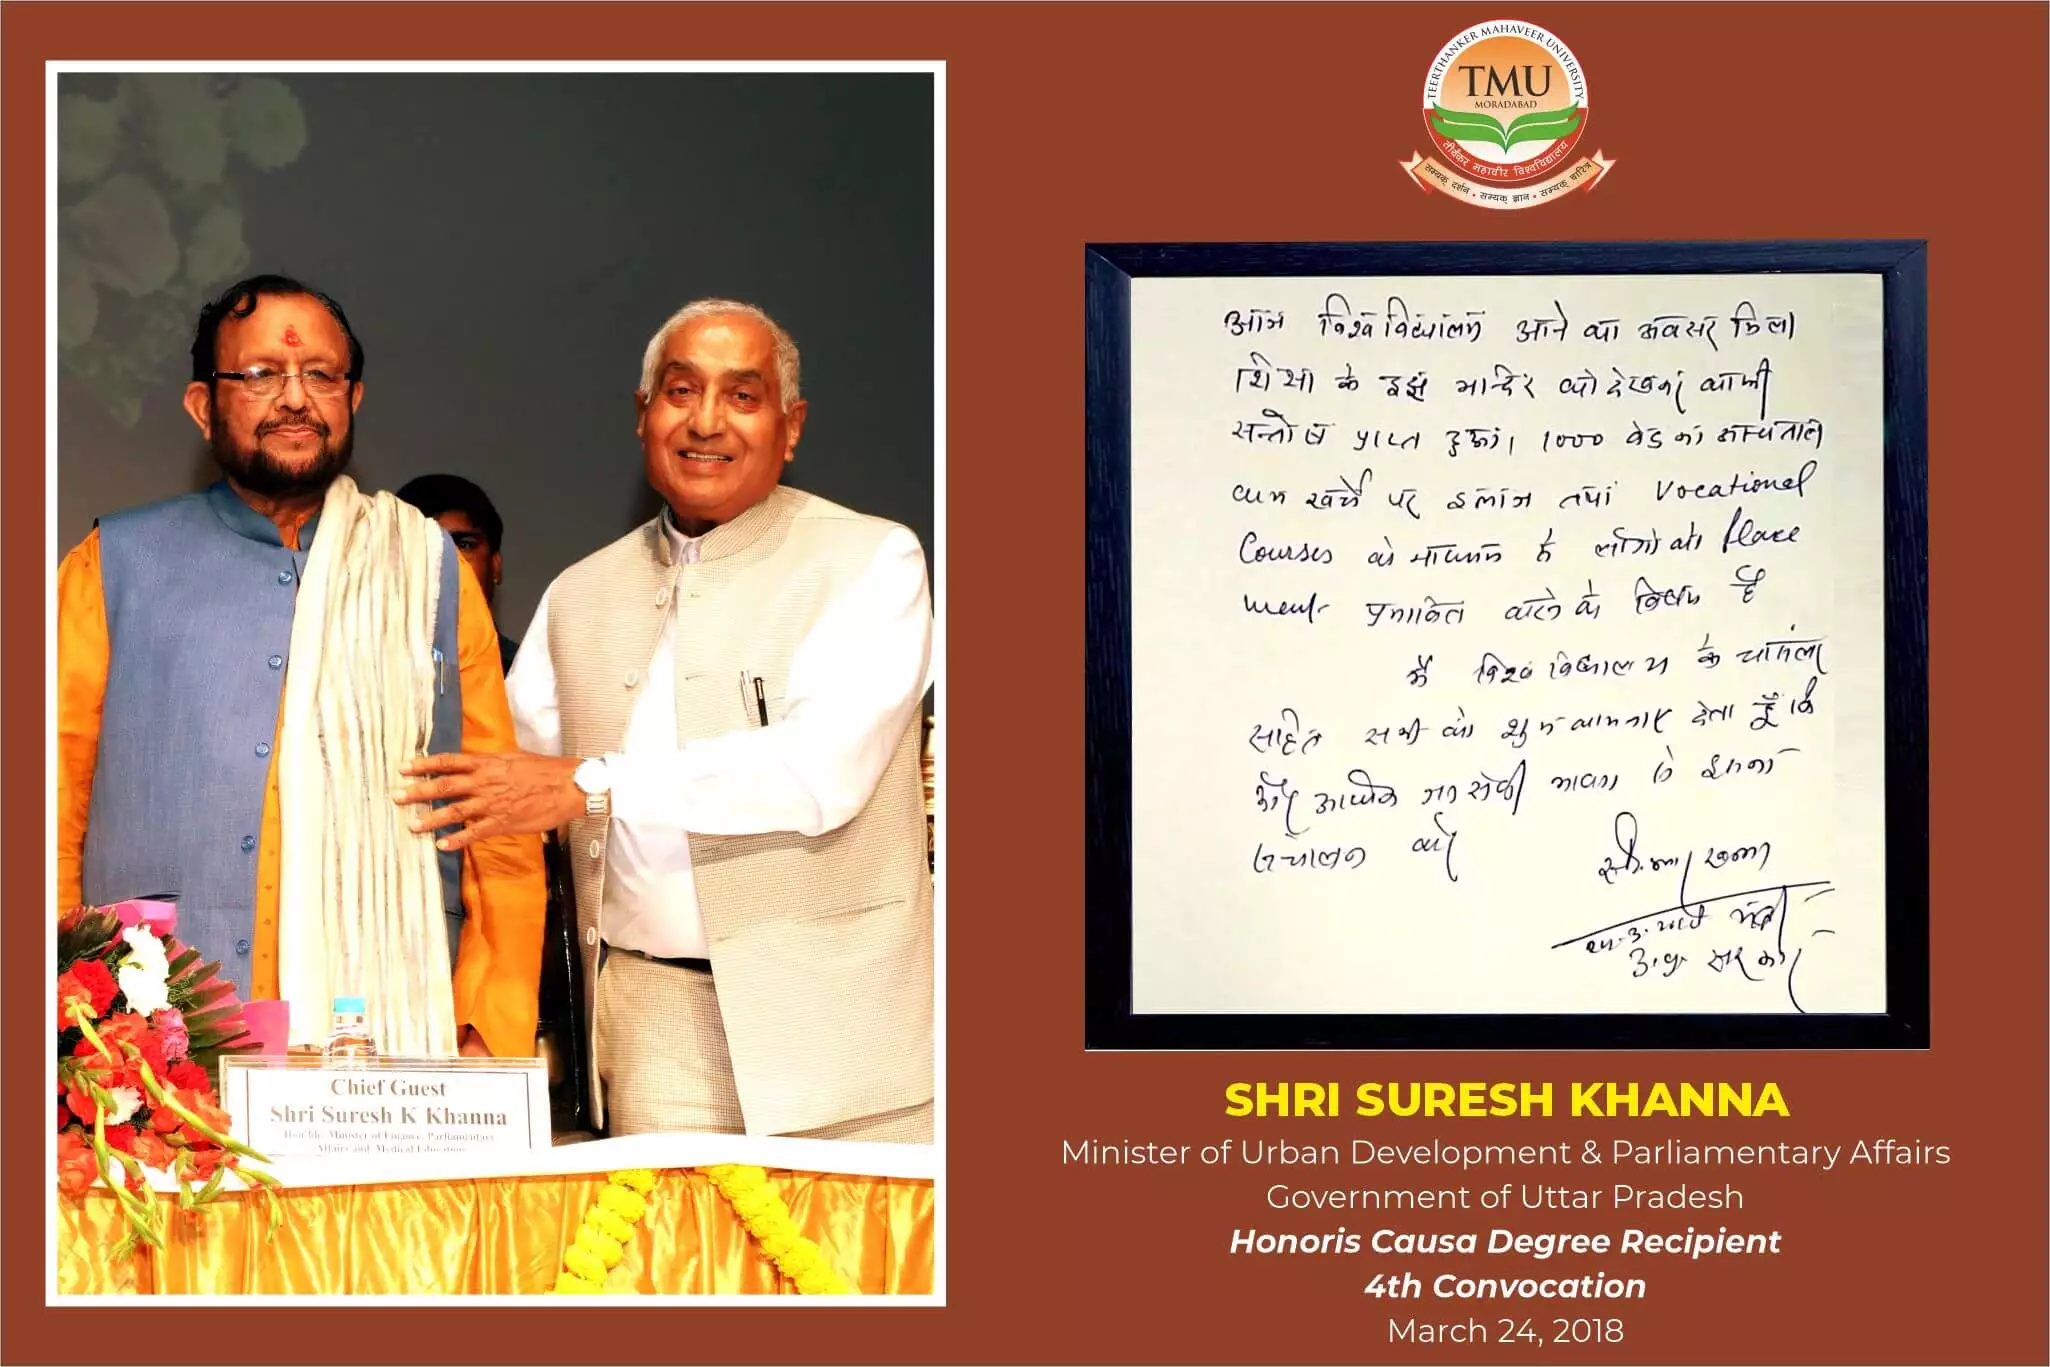 TEERTHANKER MAHAVEER UNIVERSITY
TMU
MORADABAD
तीर्थंकर महावीर विश्वविद्यालय
सम्यक् दर्शन • सम्यक् ज्ञान • सम्यक् चारित्र
आज विश्वविद्यालय आने का अवसर मिला
शिक्षा के इस मन्दिर को देखकर काफी
सन्तोष प्राप्त हुआ। 1000 बेड का अस्पताल
कम खर्चे पर इलाज तथा Vocational
Courses के माध्यम से लोगों को Place
ment
है
मैं विश्वविद्यालय के
सहित सभी को शुभकामनाएं देता हूँ कि
और सेवा भावना से इसका
संचालन करें
खन्ना
मंत्री
उ.प्र. सरकार
Chief Guest
Shri Suresh K Khanna
Hon'ble Minister of Finance, Parliamentary
Affairs and Medical Education
SHRI SURESH KHANNA
Minister of Urban Development & Parliamentary Affairs
Government of Uttar Pradesh
Honoris Causa Degree Recipient
4th Convocation
March 24, 2018